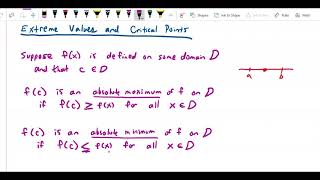 Extreme Values and Critical Points
Suppose f(x) is defined on some domain D
and that c ∈ D
a b
f(c) is an absolute maximum of f on D
if f(c) ≥ f(x) for all x ∈ D
f(c) is an absolute minimum of f on D
if f(c) ≤ f(x) for all x ∈ D